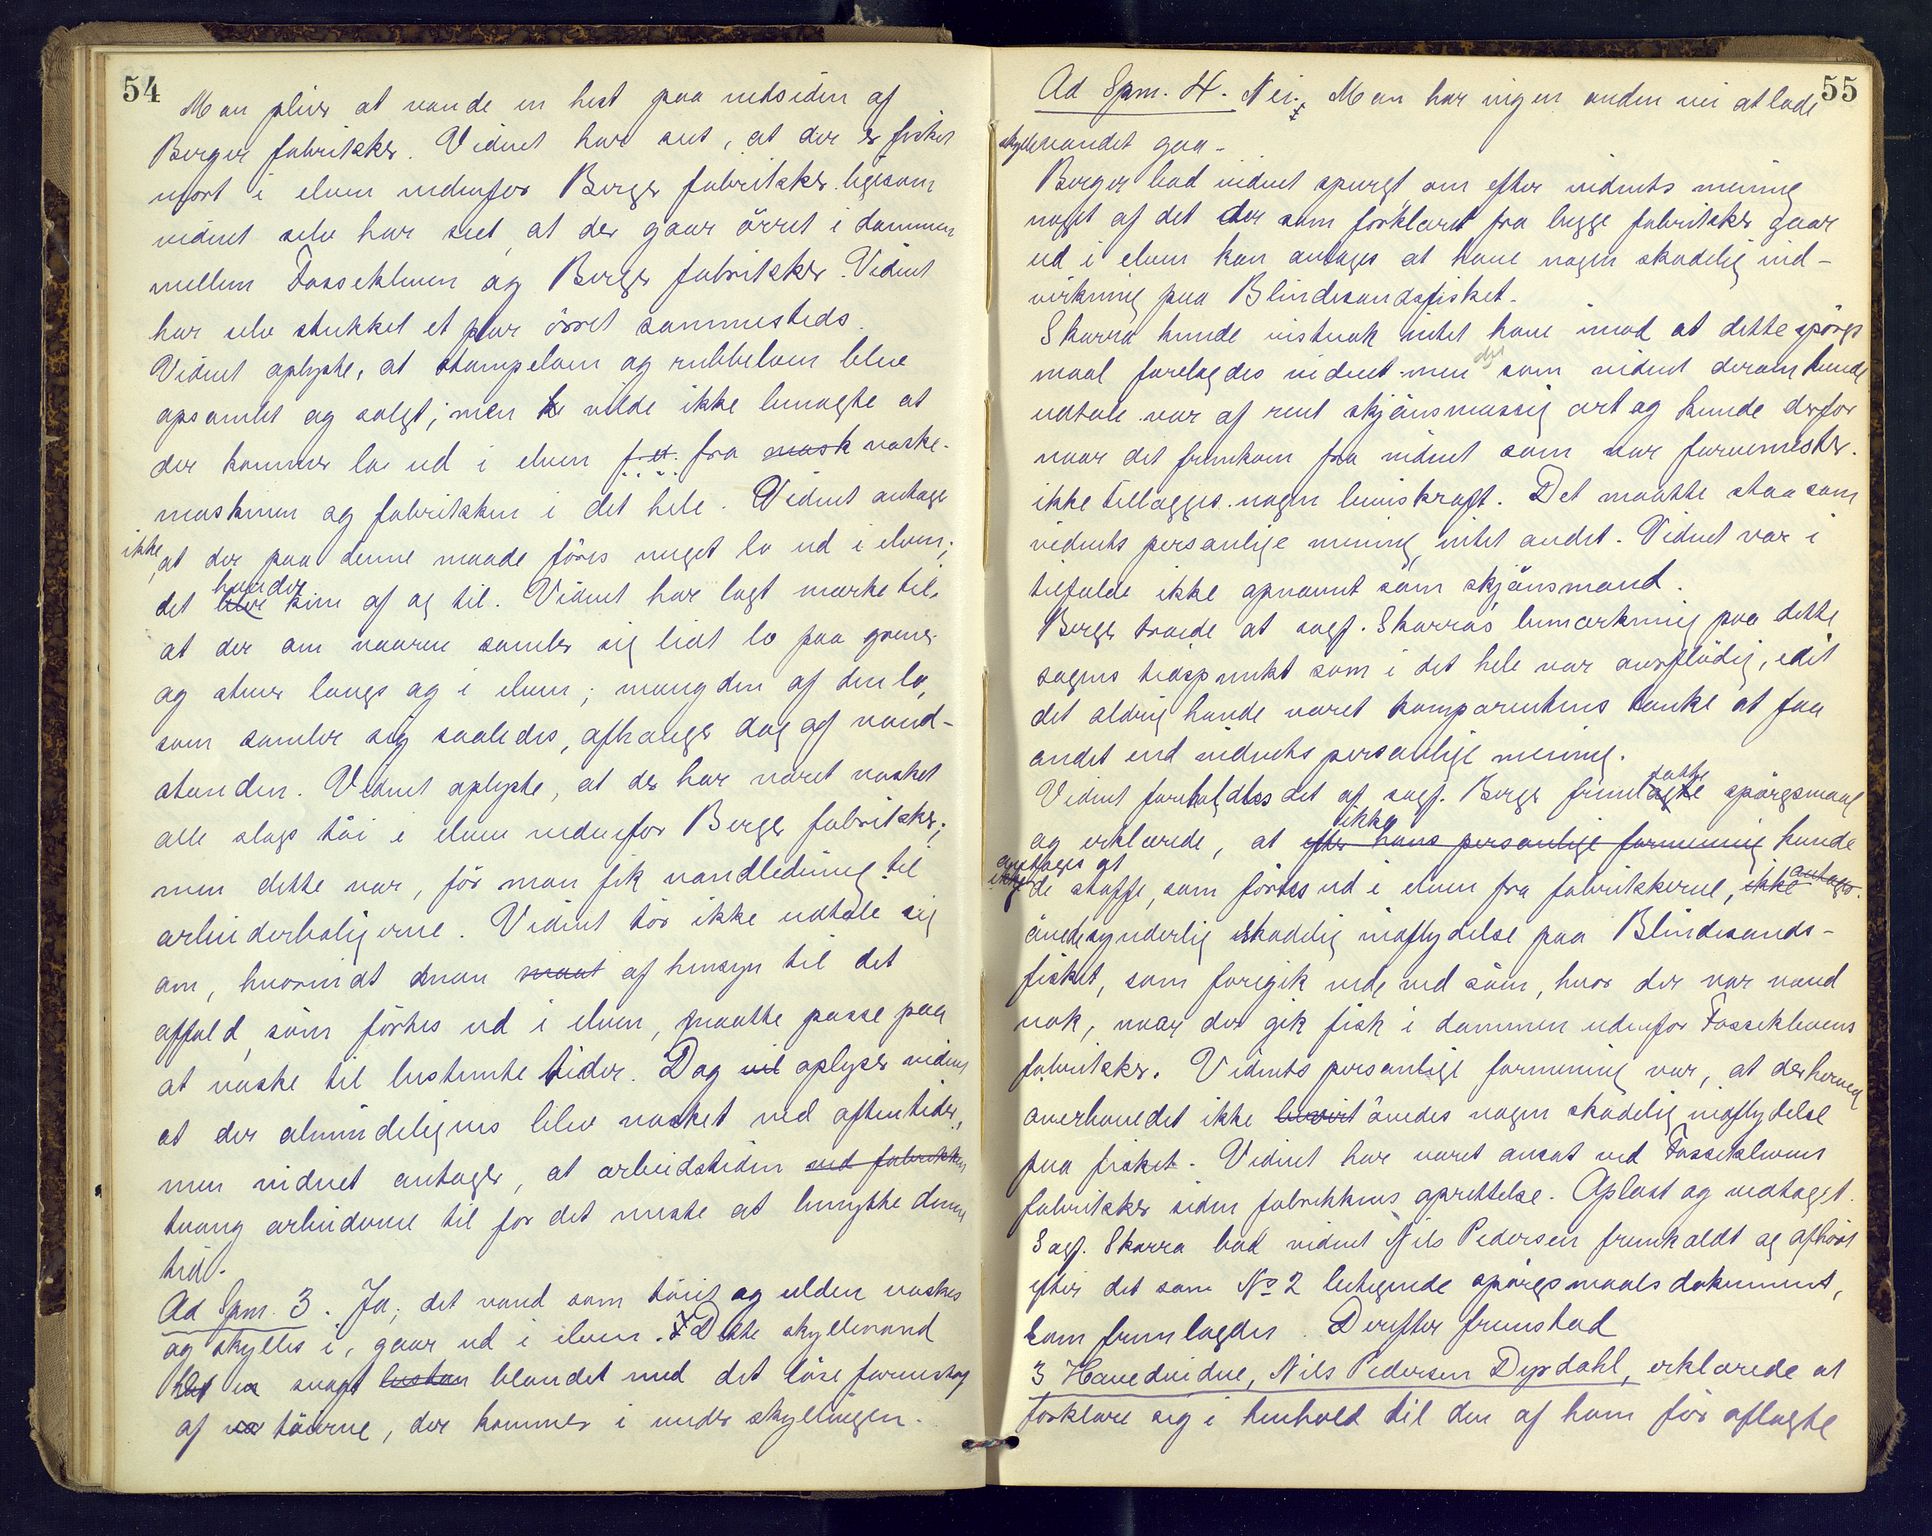 54
Man pleier at vande en hest paa nedsiden af
Berger fabrikker. Vidnet har seet, at der er fisket
mort i elven nedenfor Berger fabrikker ligesom
vidnet selv har seet at der gaar örret i dammen
mellem Fossekleven og Berger fabrikker. Vidnet
har selv stukket et par örret sammesteds.
Vidnet oplyste, at stampeloen og rubbeloen blev
opsamlet og solgt; men vilde ikke benegte at
der kommer lo ud i elven f. ex. fra mask vaske-
maskinen og fabrikken i det hele. Vidnet antager
ikke, at der paa denne maade föres meget lo ud i elven;
det blev hænder kun af og til. Vidnet har lagt mærke til,
at der om vaaren samler sig lidt lo paa grener
og stener langs og i elven; mængden af den lo,
som samler sig saaledes, afhænger dog af vand-
standen. Vidnet oplyste, at der har været vasket
alle slags töi i elven nedenfor Berger fabrikker;
men dette var, för man fik vandledning til
arbeiderboligerne. Vidnet tör ikke udtale sig
om, hvorvidt man maat af hensyn til det
affald, som förtes ud i elven, maatte passe paa
at vaske til bestemte tider. Dog vil oplyser vidnet
at der almindeligvis blev vasket ved aftentider,
men vidnet antager, at arbeidstiden ved fabrikken
tvang arbeiderne til for det meste at benytte denne
tid.
Ad Spm. 3. Ja; det vand som töiet og ulden vaskes
og skylles i, gaar ud i elven. Dette skyllevand
er svagt blandet med det löse farvestof
af töierne, der kommer i under skyllingen.
55
Ad Spm. 4. Nei. Man har ingen anden vei at lade
skyllevandet gaa.
Berger bad vidnet spurgt om efter vidnets mening
noget af det der som forklaret fra begge fabrikker gaar
ud i elven kan antages at have nogen skadelig ind-
virkning paa Blindesandsfisket.
Skarra kunde vistnok intet have imod at dette spörgs
maal forelagdes vidnet men det som vidnet derom kunde
udtale var af rent skjönsmæssig art og kunde derfor
naar det fremkom fra vidnet som var farvemester
ikke tillægges nogen beviskraft. Det maatte staa som
vidnets personlige mening, intet andet. Vidnet var i
tilfælde ikke opnævnt som skjönsmand.
Berger troede at sagf. Skarras bemærkning paa dette
sagens tidspunkt som i det hele var overflödig, idet
det aldrig havde været komparentens tanke at faa
andet end vidnets personlige mening.
Vidnet foreholdtes det af sagf. Berger fremsatte spörgsmaal
og erklærede, at efter hans personlige formening ikke kunde
antages at de stoffe, som förtes ud i elven fra fabrikkerne, ikke antages
övede synderlig skadelig indflydelse paa Blindesands-
fisket, som foregik nede ved söen, hvor der var vand
nok, naar der gik fisk i dammen udenfor Fosseklevens
fabrikker. Vidnets personlige formening var, at der herved
overhovedet ikke övedes nogen skadelig indflydelse
paa fisket. Vidnet har været ansat ved Fosseklevens
fabrikker siden fabrikkens oprettelse. Oplæst og vedtaget.
Sagf. Skarra bad vidnet Nils Pedersen fremkaldt og afhört
efter det som No 2 betegnede spörgsmaalsdokument,
som fremlagdes. Derefter fremstod
3 Hovedvidne, Nils Pedersen Dyrdahl, erklærede at
forklare sig i henhold til den af ham för aflagte